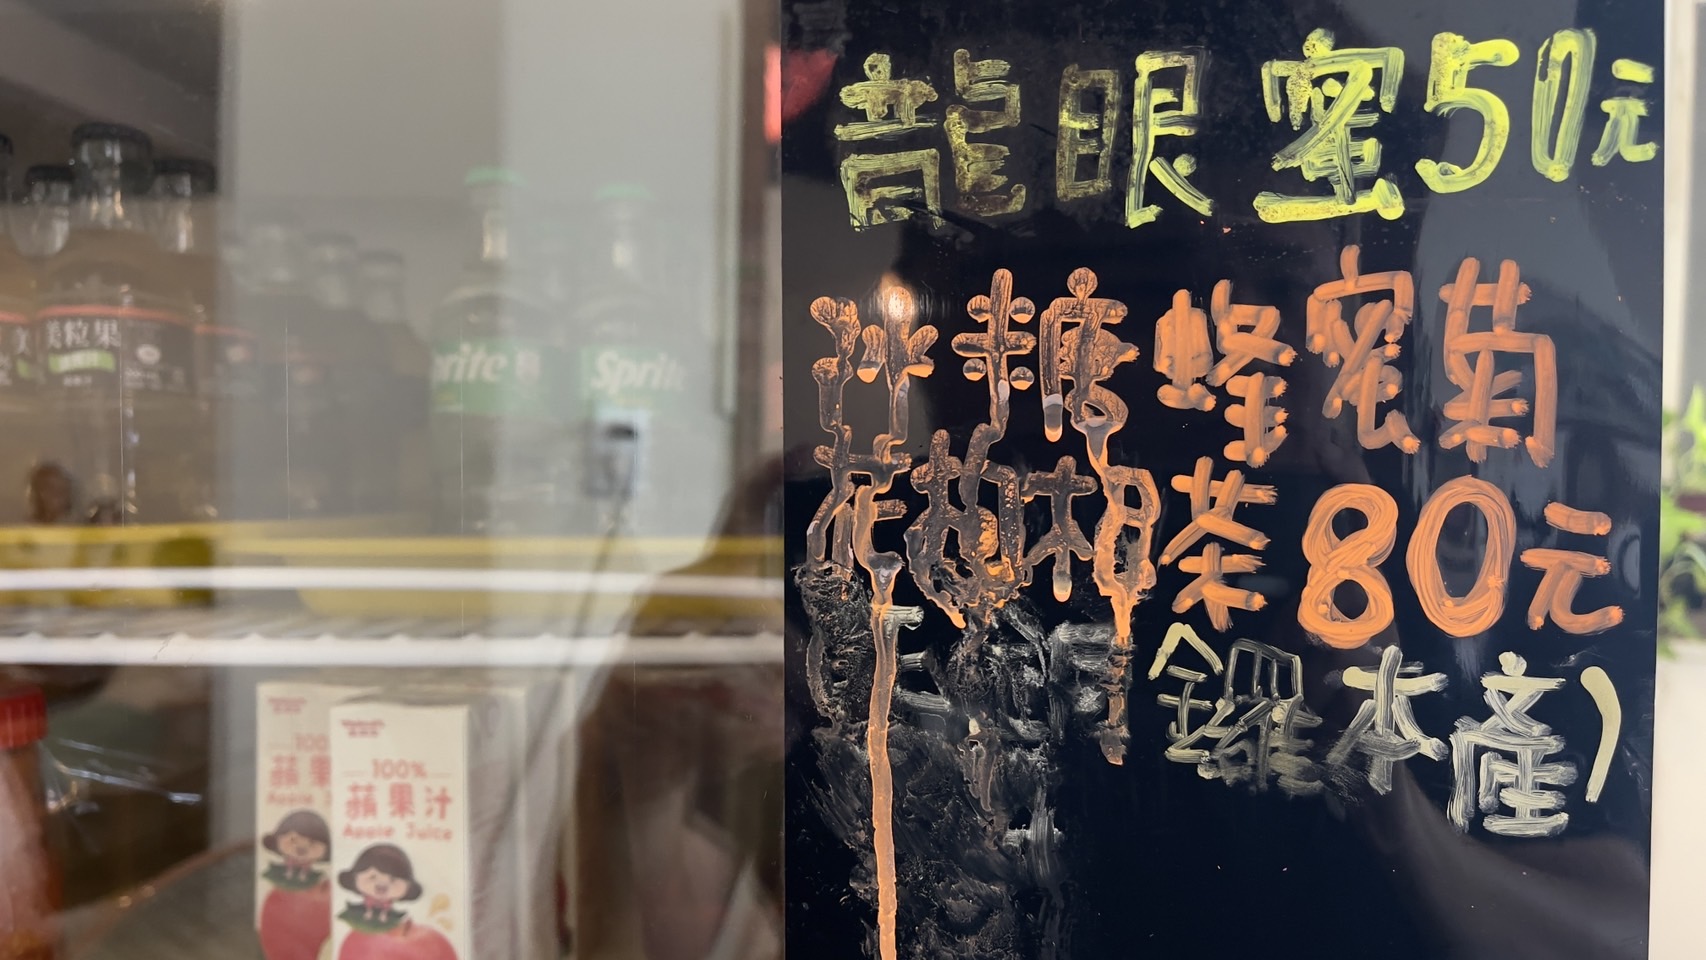 龍眼蜜50元
冰糖蜂蜜菊
花枸杞茶80元
罐本產)
美粒果
Sprite
Sprite
100%
蘋果汁
Apple Juice
100
蘋果
Apple J